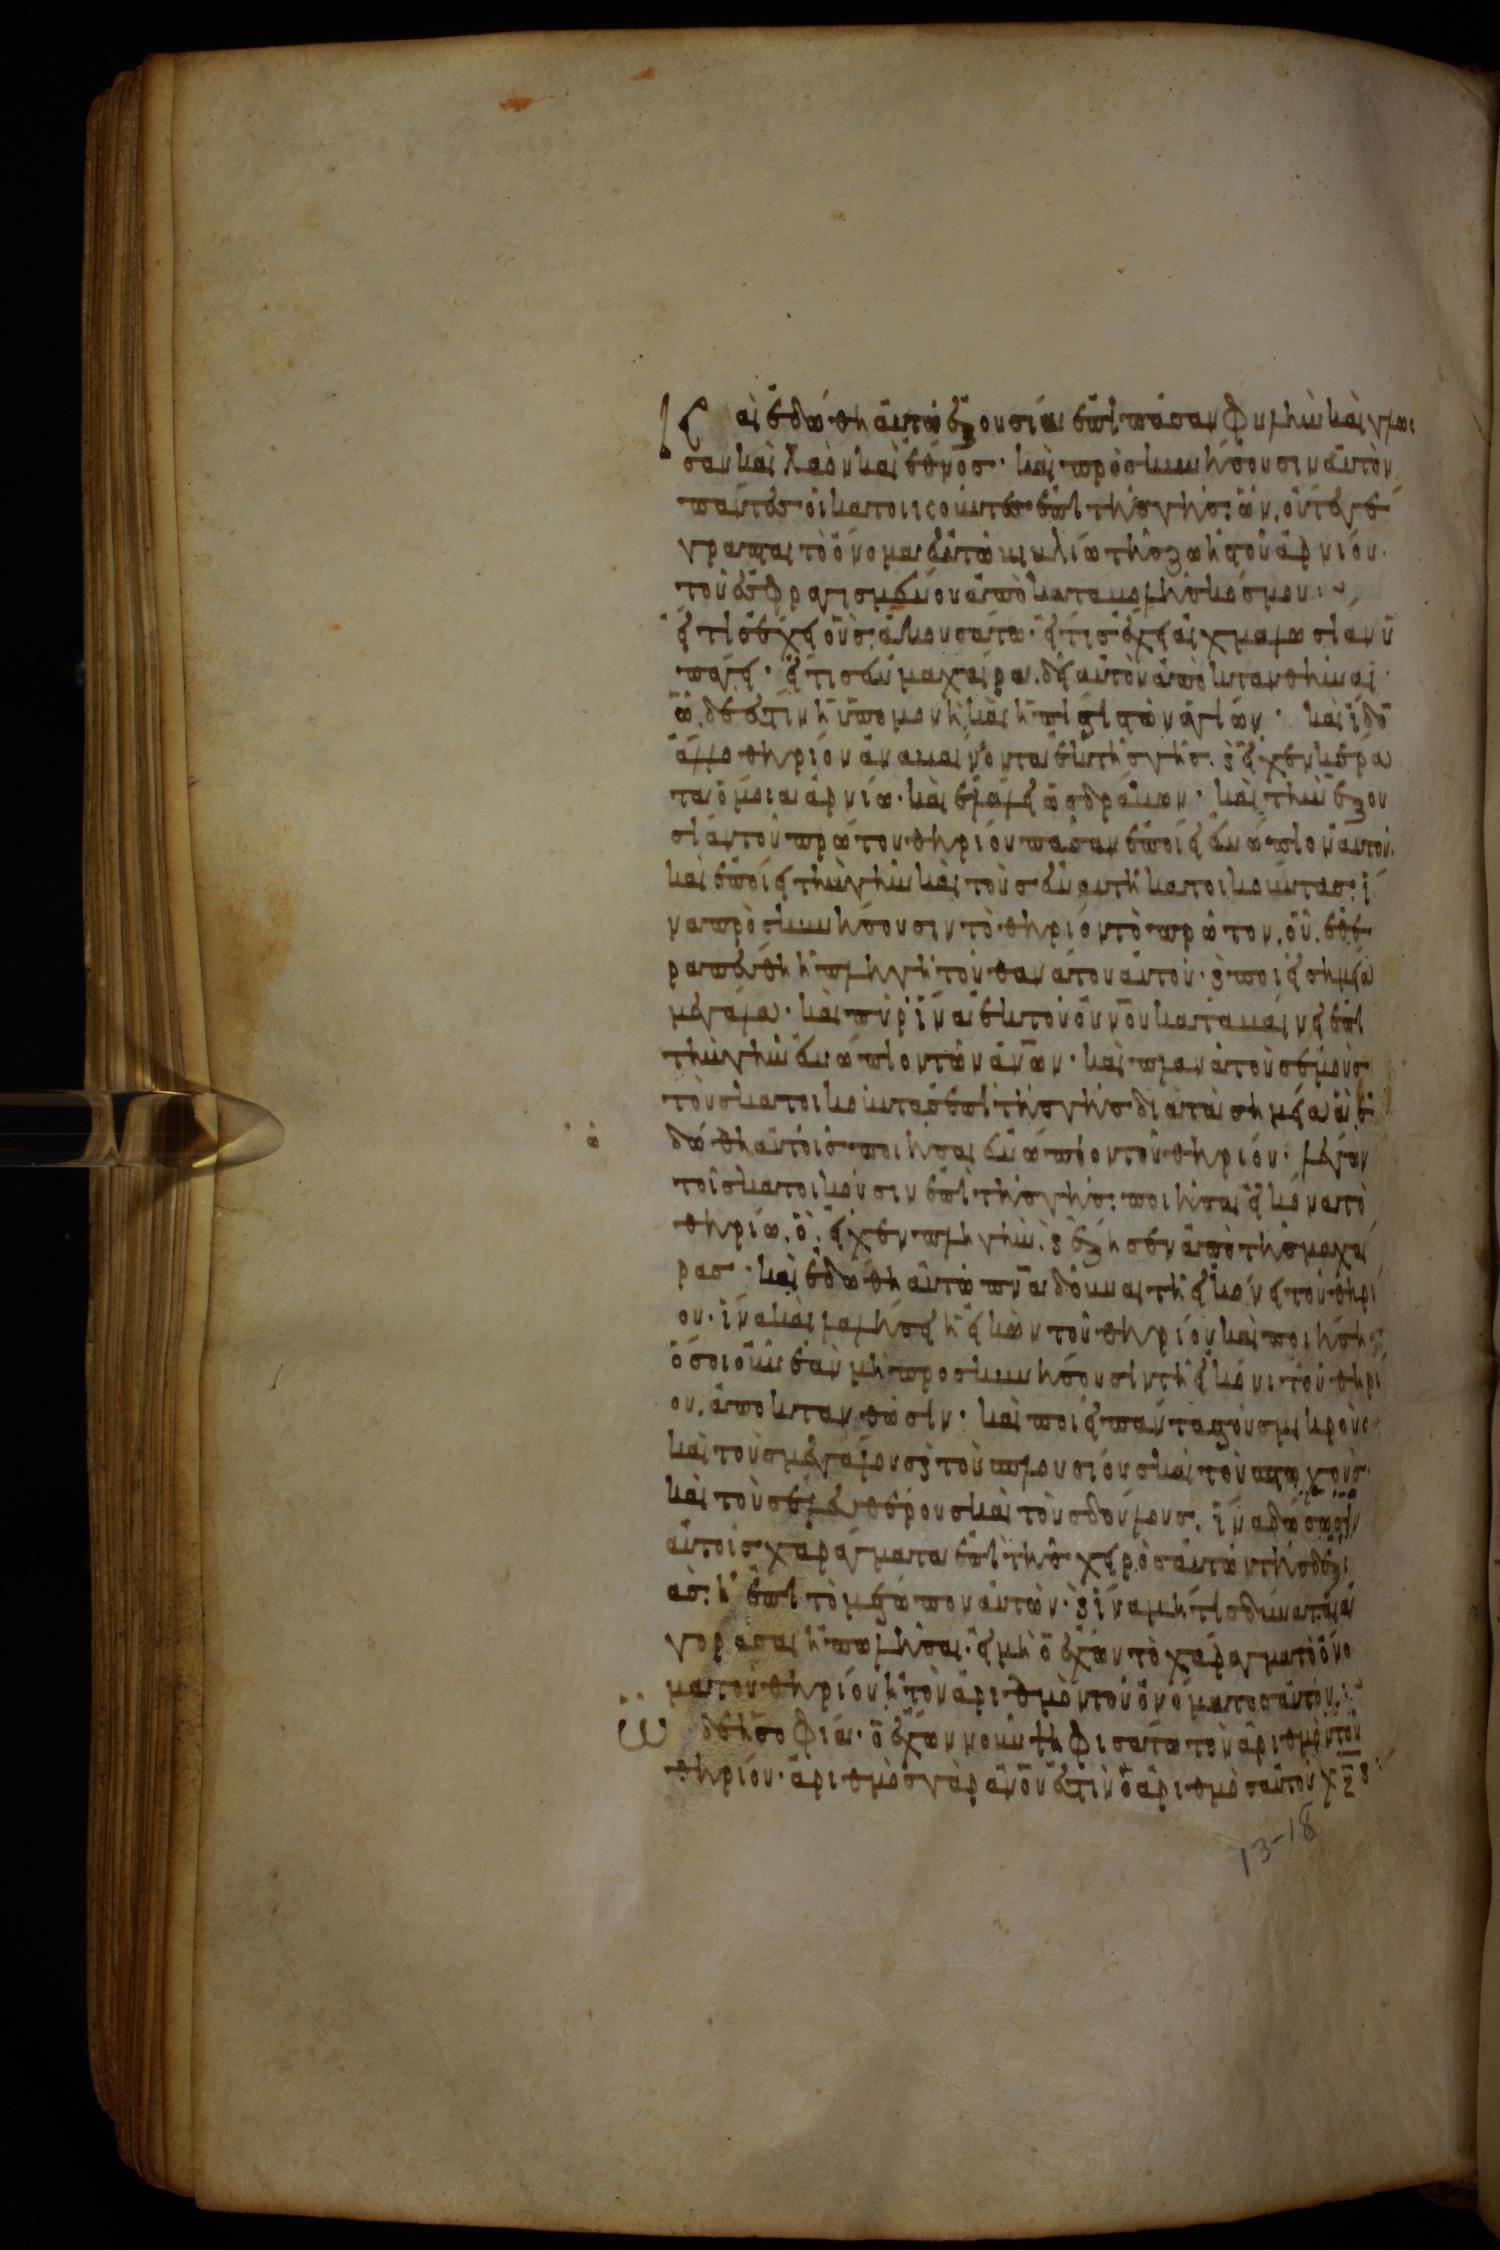 Καὶ ἐδώθη αὐτῶ ἐξουσία ἐπὶ πᾶσαν φυλὴν καὶ γλω
σαν καὶ λαὸν καὶ ἔθνος· καὶ προσκυνήσουσιν αὐτὸν
πάντες οἱ κατοικοῦντες ἐπὶ τῆς γῆς· ὧν, οὔτε γέ
γραπται τὸ ὄνομα ἐν τῶ βιβλίω τῆς ζωῆς τοῦ ἀρνίου·
τοῦ ἐσφραγισμένου ἀπὸ καταβολῆς κόσμου:~
εἴ τις ἔχει οὖς· ἀκουσάτω· εἴ τις ἔχει αἰχμαλωσίαν ὑ
πάγει· εἴ τις ἐν μαχαίρα, δεῖ αὐτὸν ἀποκτανθῆναι·
ὧδέ ἐστιν ἡ ὑπομονὴ καὶ ἡ πίστις τῶν ἁγίων· καὶ ἰδοῦ
ἄλλο θηρίον ἀναβαίνοντα ἐκ τῆς γῆς. ϗ εἶχεν κέρα
τα ὅμοια ἀρνίω· καὶ ἐλάλει ὡς δράκων· καὶ τὴν ἐξου
σίαν τοῦ πρώτου θηρίου πᾶσαν ἐποίει ἐνώπιον αὐτοῦ·
καὶ ἐποίει τὴν γῆν καὶ τοὺς ἐν αὐτῆ κατοικοῦντας· ἵ
να προσκυνήσουσιν τὸ θηρίον τὸ πρῶτον, οὗ, ἐθε
ραπεύθη ἡ πληγὴ τοῦ θανάτου αὐτοῦ· ϗ ποιεῖ σημεῖα
μεγάλα· καὶ πῦρ ἵνα ἐκ τοῦ οὐνοῦ καταβαίνει ἐπὶ
τὴν γῆν ἐνώπιον τῶν ἀνων· καὶ πλανᾶ τοὺς ἐμοὺς
τοὺς κατοικοῦντας ἐπὶ τῆς γῆς διὰ τὰ σημεῖα ἃ ἐ
δώθη αὐτοῖς ποιῆσαι ἐνώπιον τοῦ θηρίου· λέγων
τοῖς κατοικοῦσιν ἐπὶ τῆς γῆς· ποιῆσαι εἰκόνα τῶ
θηρίω, ὃ, εἶχεν πληγὴν, ϗ ἔζησεν ἀπὸ τῆς μαχαί
ρας· καὶ ἐδώθη αὐτῶ πνα δοῦναι τῆ εἰκόνει τοῦ θηρί
ου· ἵνα καὶ λαλήσει ἡ εἰκὼν τοῦ θηρίου καὶ ποιήση
ὅσοι οὖν ἐὰν μὴ προσκυνήσουσιν τῆ εἰκόνι τοῦ θηρί
ου, ἀποκτανθῶσιν· καὶ ποιεῖ πάντας τοὺς μικροὺς
καὶ τοὺς μεγάλους ϗ τοὺς πλουσίους καὶ τοὺς πτωχούς·
καὶ τοὺς ἐλευθέρους καὶ τοὺς δούλους, ἵνα δώσωσιν
αὐτοῖς χαράγματα ἐπὶ τῆς χειρὸς αὐτῶν τῆς δεξι
ᾶς· ἢ ἐπὶ τὸ μέτωπον αὐτῶν· ϗ ἵνα μή τις δύναται ἀ
γοράσαι ἢ πωλῆσαι· εἰ μὴ ὁ ἔχων τὸ χάραγμα τὸ ὄνο
μα τοῦ θηρίου ἢ τὸν ἀριθμὸν τοῦ ὀνόματος αὐτοῦ·
Ὧδε ἡ σοφία· ὁ ἔχων νοῦν ψηφισάτω τὸν ἀριθμὸν τοῦ
θηρίου· ἀριθμὸς γὰρ ἀνου ἐστὶν ὁ ἀριθμὸς αὐτοῦ χξϛ·
13-18